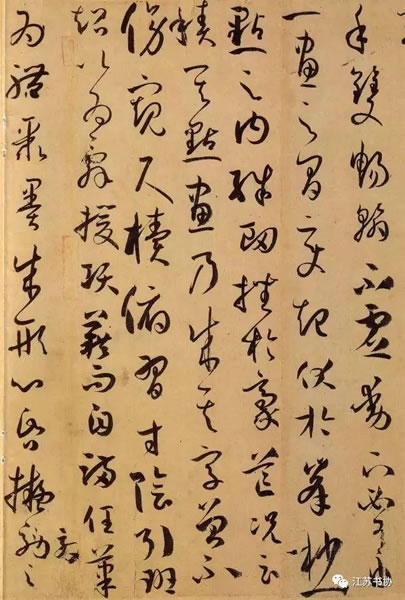 手雙暢翰不虛動下必有由
一畫之間變起伏於峯杪一
點之內殊衄挫於豪芒況云
積其點畫乃成其字曾不
傍窺尺牘俯習寸陰引班
超以為辭援項籍而自滿任筆
為體聚墨成形心昏擬效之
江苏书协